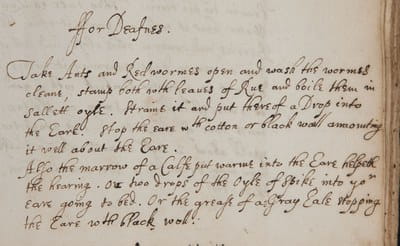 ffor Deafnes.
Take Ants and Red wormes open and wash the wormes
cleane, stamp both wth leaves of Rue and boile them in
sallett oyle. Straine it and put thereof a Drop into
the Eare. Stop the eare wth cotton or black wooll annointing
it well about the Eare.
Also the marrow of a Calfe put warme into the Eare helpeth
the hearing. Or two drops of the Oyle of Spike into yor
eare going to bed. Or the grease of a gray Eale stopping
the Eare wth black wooll.